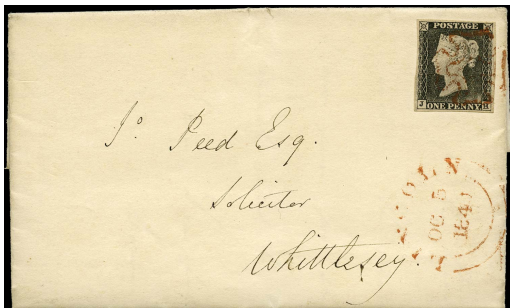 POSTAGE
J H
ONE PENNY
Jº. Peed Esq.
Solicitor
Whittlesey.
LINCOLN
OC 5
1840